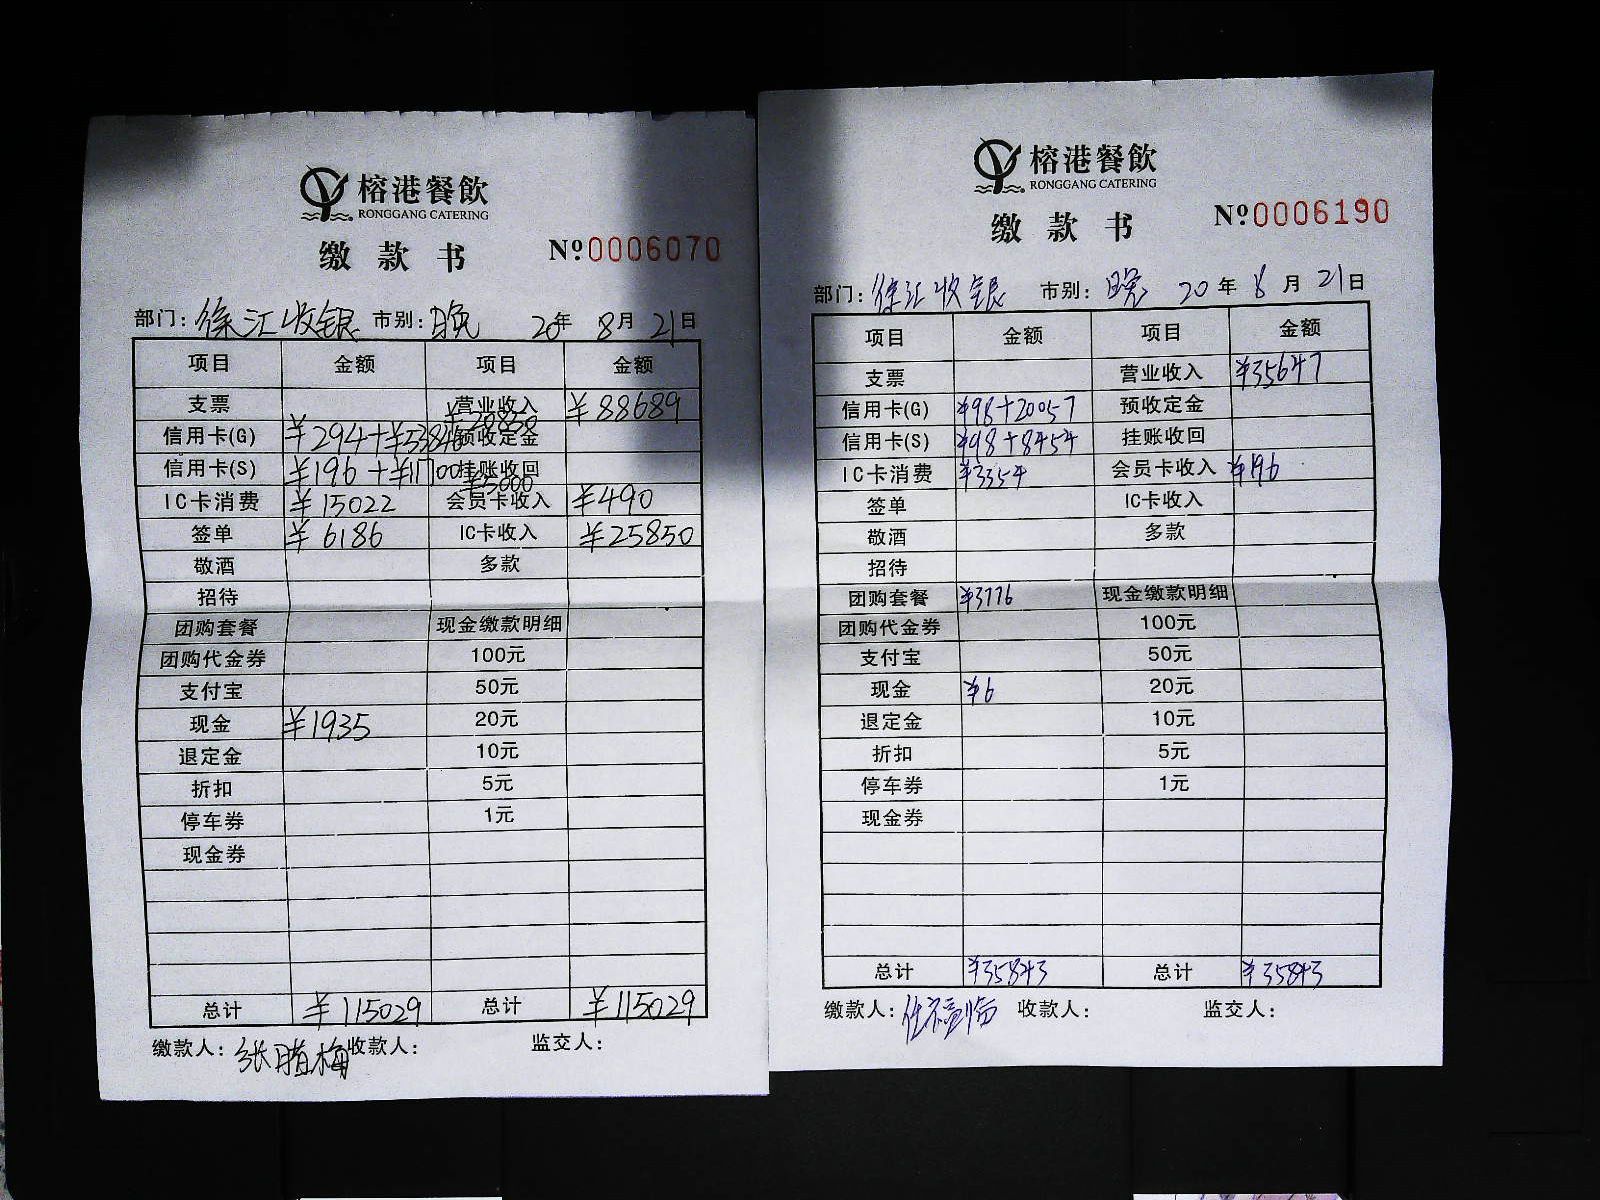 榕港餐飲
RONGGANG CATERING
缴款书 №0006070
部门: 徐汇收银 市别: 晚 20年 8月 21日
项目 金额 项目 金额
支票 营业收入 ¥88689
信用卡(G) ¥294+¥53846 ¥20850 预收定金
信用卡(S) ¥196+¥11700 ¥5000 挂账收回
IC卡消费 ¥15022 会员卡收入 ¥490
签单 ¥6186 IC卡收入 ¥25850
敬酒 多款
招待
团购套餐 现金缴款明细
团购代金券 100元
支付宝 50元
现金 ¥1935 20元
退定金 10元
折扣 5元
停车券 1元
现金券
总计 ¥115029 总计 ¥115029
缴款人: 张腊梅 收款人: 监交人:
榕港餐飲
RONGGANG CATERING
缴款书 №0006190
部门: 徐汇收银 市别: 晚 20年 8月 21日
项目 金额 项目 金额
支票 营业收入 ¥35647
信用卡(G) ¥98+20057 预收定金
信用卡(S) ¥98+8454 挂账收回
IC卡消费 ¥3354 会员卡收入 ¥196
签单 IC卡收入
敬酒 多款
招待
团购套餐 ¥3776 现金缴款明细
团购代金券 100元
支付宝 50元
现金 ¥6 20元
退定金 10元
折扣 5元
停车券 1元
现金券
总计 ¥35843 总计 ¥35843
缴款人: 收款人: 监交人: